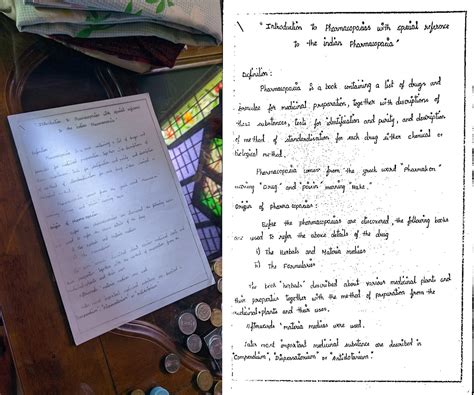 " Introduction to Pharmacopoeias with special reference
to the indian Pharmacopoeia"
Definition:
Pharmacopoeia is a book containing a list of drugs and
formulae for medicinal preparation, together with descriptions of
these substances, tests for identification and purity, and description
of method of standardisation for each drug either chemical or
biological method.
Pharmacopoeia comes from the greek word "Pharmakon"
meaning "Drug" and poiein meaning "Make."
Origin of Pharmacopoeias:
Before the pharmacopoeias are discovered, the following books
are used to refer the above details of the drug
i) The Herbals and Materia medicas
ii) The Formularies
The book "herbals" described about various medicinal plants and
their properties together with the method of preparation from the
medicinal plants and their uses.
Afterwards 'materia medicas were used.
Later most important medicinal substance are described in
"Compendium", "Dispensatorium" or "Antidotarium".